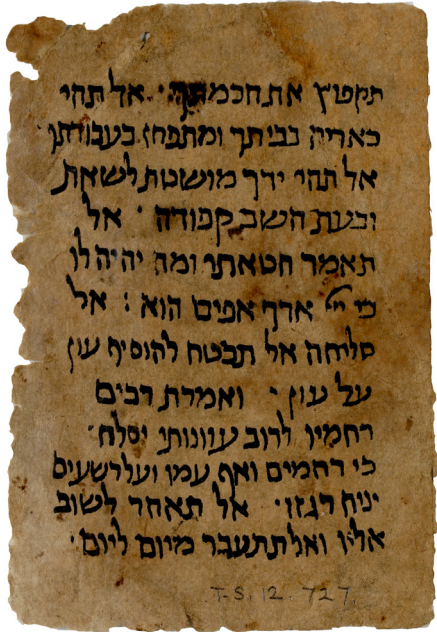 תקפוץ את חכמתך · אל תהי
כאריה בביתך ומתפחז בעבודתך
אל תהי ידך מושטת לשאת
ובעת השב קפודה · אל
תאמר חטאתי ומה יהיה לו
כי ייי ארך אפים הוא : אל
סליחה אל תבטח להוסיף עון
על עון · ואמרת רבים
רחמיו לרוב עוונותי יסלח ·
כי רחמים ואף עמו ועל רשעים
יניח רגזו · אל תאחר לשוב
אליו ואל תתעבר מיום ליום ·
T-S. 12. 727.